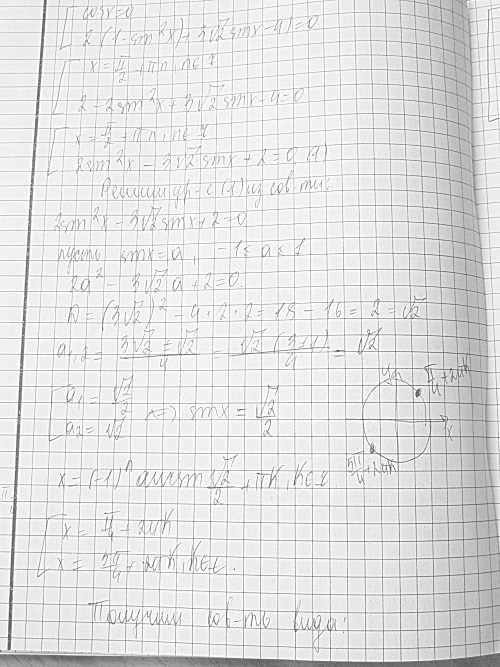 cosx=0
2(1-sin²x)+3√2sinx-4=0
x=π/2+πn, n∈Z
2-2sin²x+3√2sinx-4=0
x=π/2+πn, n∈Z
2sin²x-3√2sinx+2=0 (1)
Решим ур-е (1) из сов-ти:
2sin²x-3√2sinx+2=0
пусть sinx=a, -1≤a≤1
2a²-3√2a+2=0
D=(3√2)²-4·2·2=18-16=2=√2
a1,2=(3√2±√2)/4=√2(3±1)/4=√2
a1=√2/2
a2=√2 <=> sinx=√2/2
y π/4+2πK
x
5π/4+2πK
x=(-1)ⁿarcsin√2/2+πK, K∈Z.
x=π/4+2πK
x=5π/4+2πK, K∈Z.
Получим сов-ть вида: